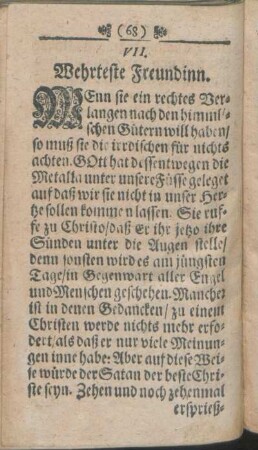 (68)
VII.
Wehrteste Freundinn.
WEnn sie ein rechtes Ver-
langen nach den himml/
schen Gütern will haben/
so muß sie die irrdischen für nichts
achten. GOtt hat dessentwegen die
Metalla unter unsere Füsse geleget
auf daß wir sie nicht in unser Her-
tze sollen kommen lassen. Sie ruf-
fe zu Christo/ daß Er ihr jetzo ihre
Sünden unter die Augen stelle/
denn sonsten wird es am jüngsten
Tage/ in Gegenwart aller Engel
und Menschen geschehen. Mancher
ist in denen Gedancken/ zu einem
Christen werde nichts mehr erfo-
dert/ als daß er nur viele Meinun-
gen inne habe: Aber auf diese Wei-
se würde der Satan der beste Chri-
ste seyn. Zehen und noch zehenmal
ersprieß-